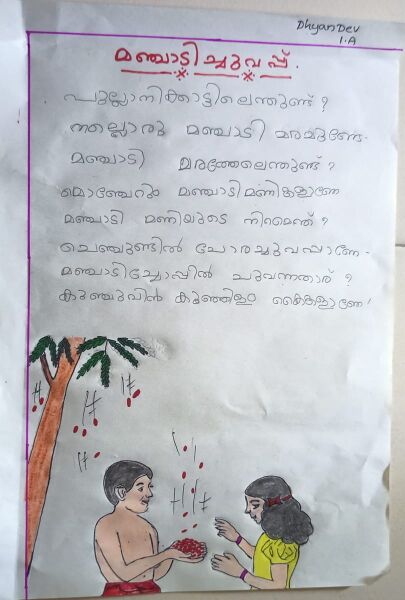 Dhyan Dev
1.A
മഞ്ചാടിച്ചുവപ്പ്.
പുല്ലാനിക്കാട്ടിലെന്തുണ്ട് ?
നല്ലൊരു മഞ്ചാടി മരമുണ്ടേ.
മഞ്ചാടി മരത്തേലെന്തുണ്ട് ?
മൊഞ്ചേറും മഞ്ചാടിമണികളാണേ
മഞ്ചാടി മണിയുടെ നിറമെന്ത് ?
ചെഞ്ചുണ്ടിൽ ചോരച്ചുവപ്പാണേ.
മഞ്ചാടിച്ചോപ്പിൽ ചുവന്നതാര് ?
കുഞ്ചുവിൻ കുഞ്ഞിളം കൈകളാണേ!